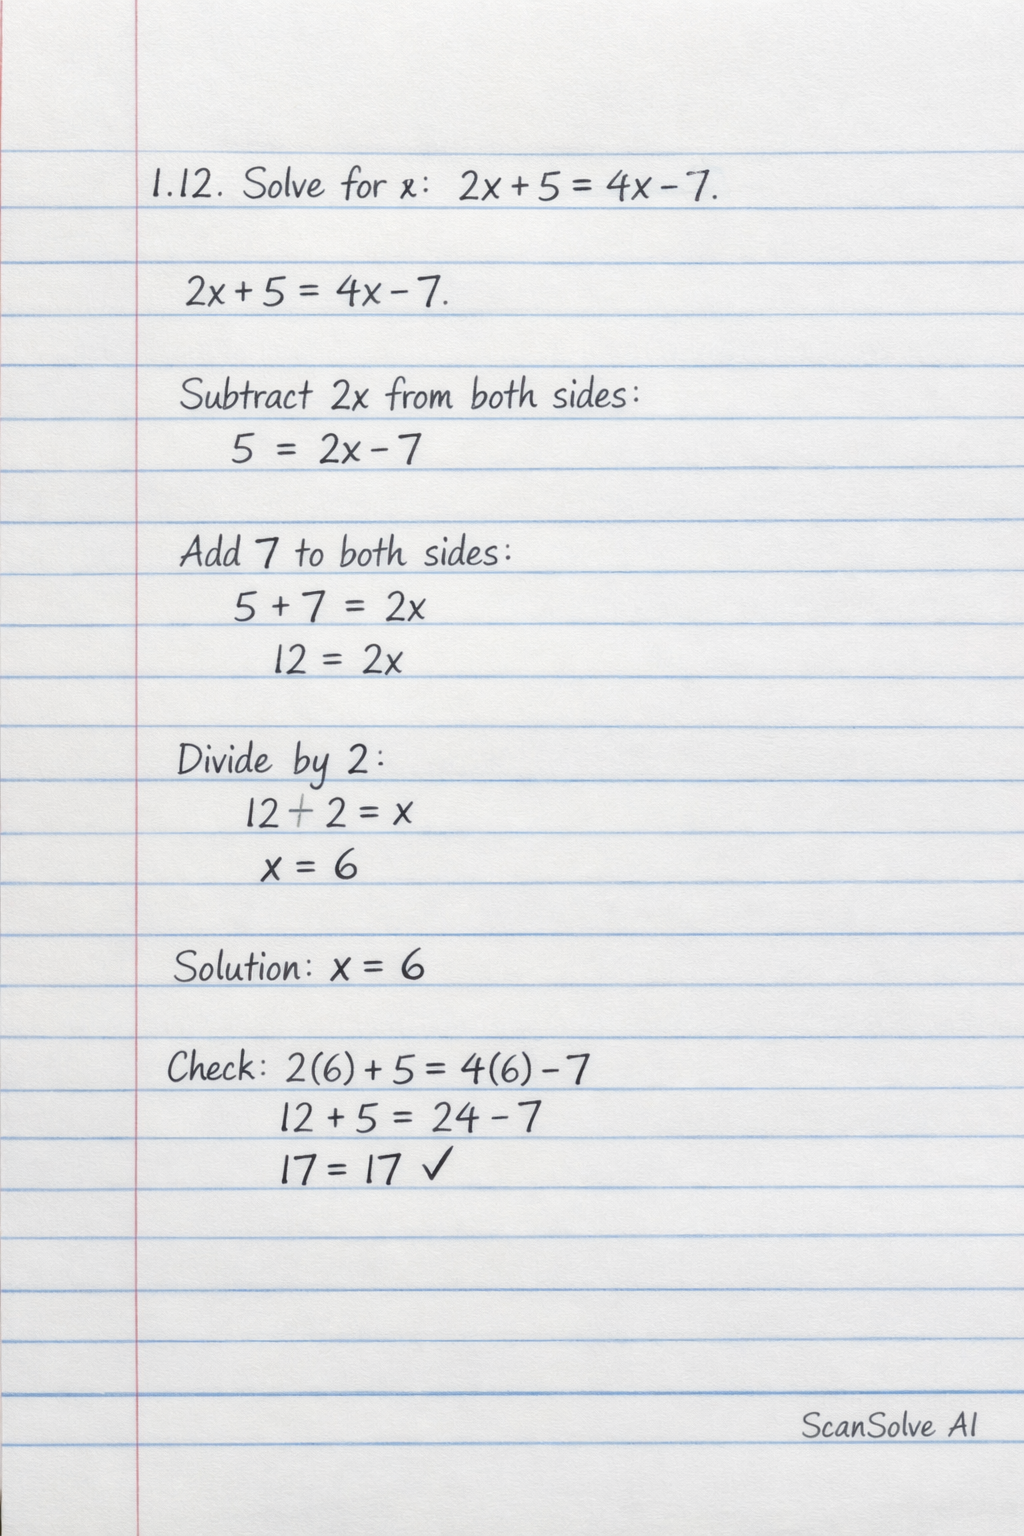 1.12. Solve for x: 2x + 5 = 4x - 7.
2x + 5 = 4x - 7.
Subtract 2x from both sides:
5 = 2x - 7
Add 7 to both sides:
5 + 7 = 2x
12 = 2x
Divide by 2:
12 + 2 = x
x = 6
Solution: x = 6
Check: 2(6) + 5 = 4(6) - 7
12 + 5 = 24 - 7
17 = 17 ✓
ScanSolve AI